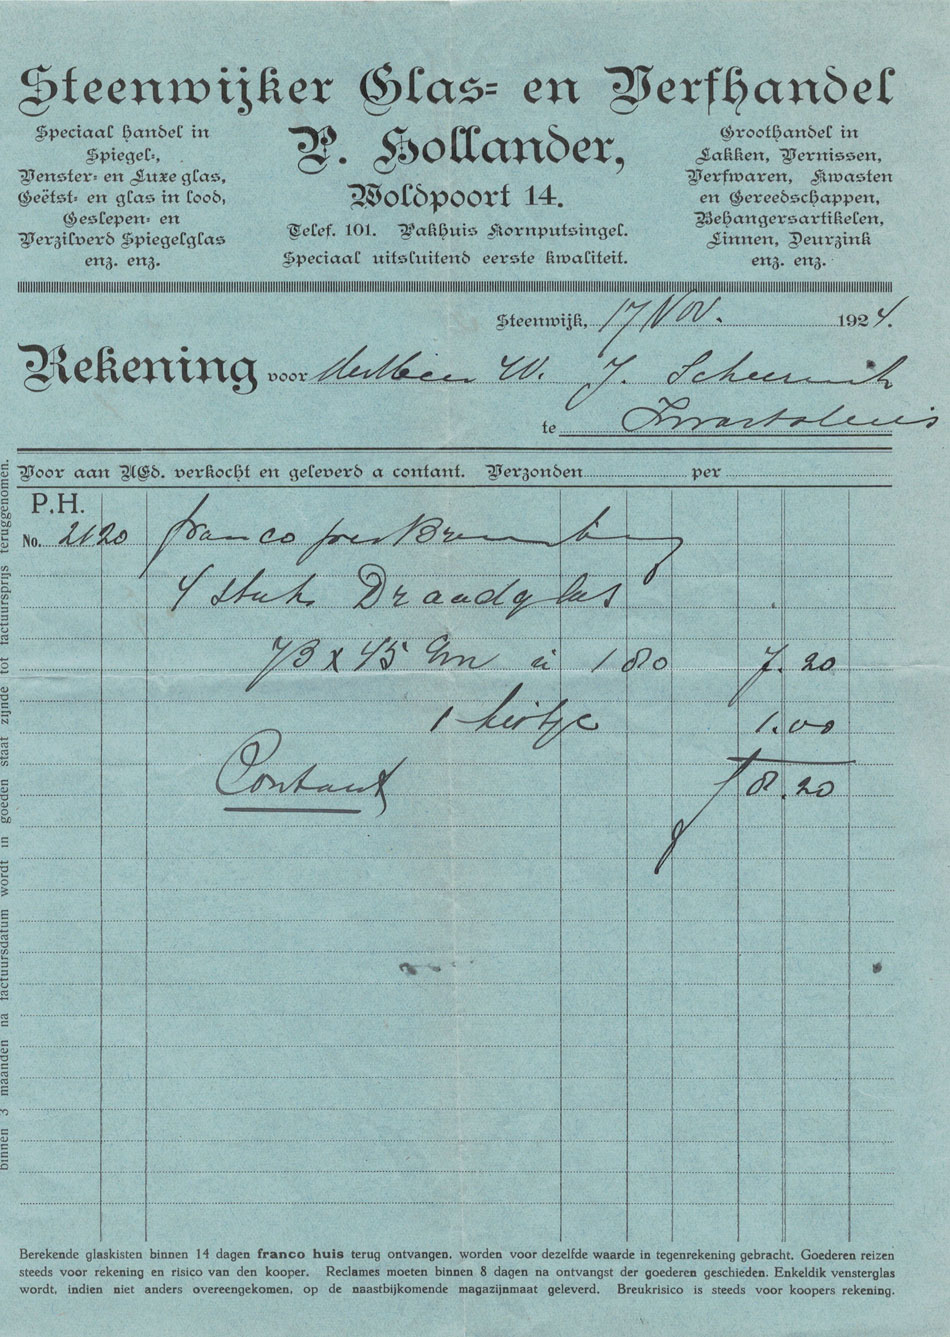 Steenwijker Glas- en Verfhandel
P. Hollander,
Woldpoort 14.
Telef. 101. Pakhuis Kornputsingel.
Speciaal uitsluitend eerste kwaliteit.
Speciaal handel in
Spiegel-,
Venster- en Luxe glas,
Geëtst- en glas in lood,
Geslepen- en
Verzilverd Spiegelglas
enz. enz.
Groothandel in
Lakken, Vernissen,
Verfwaren, Kwasten
en Gereedschappen,
Behangersartikelen,
Linnen, Deurzink
enz. enz.
Steenwijk, 17 Nov. 1924.
Rekening voor W. J.
te
Voor aan UEd. verkocht en geleverd a contant. Verzonden per
P.H.
No. 2120 franco per
4 stuks Draadglas
73 x 45 cm à 1 80 7.20
1 kistje 1.00
Contant f 8.20
binnen 3 maanden na factuursdatum wordt in goeden staat zijnde tot factuursprijs teruggenomen.
Berekende glaskisten binnen 14 dagen franco huis terug ontvangen, worden voor dezelfde waarde in tegenrekening gebracht. Goederen reizen
steeds voor rekening en risico van den kooper. Reclames moeten binnen 8 dagen na ontvangst der goederen geschieden. Enkeldik vensterglas
wordt, indien niet anders overeengekomen, op de naastbijkomende magazijnmaat geleverd. Breukrisico is steeds voor koopers rekening.